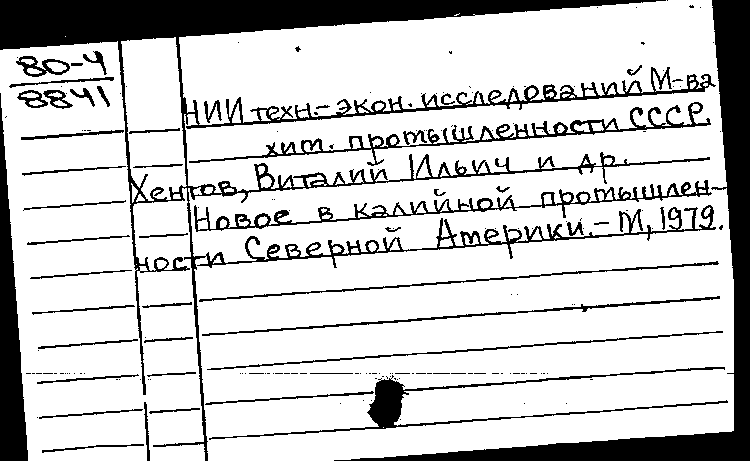 80-4
8841
НИИ техн.-экон. исследований М-ва
хим. промышленности СССР.
Хентов, Виталий Ильич и др.
Новое в калийной промышлен-
ности Северной Америки.- М, 1979.